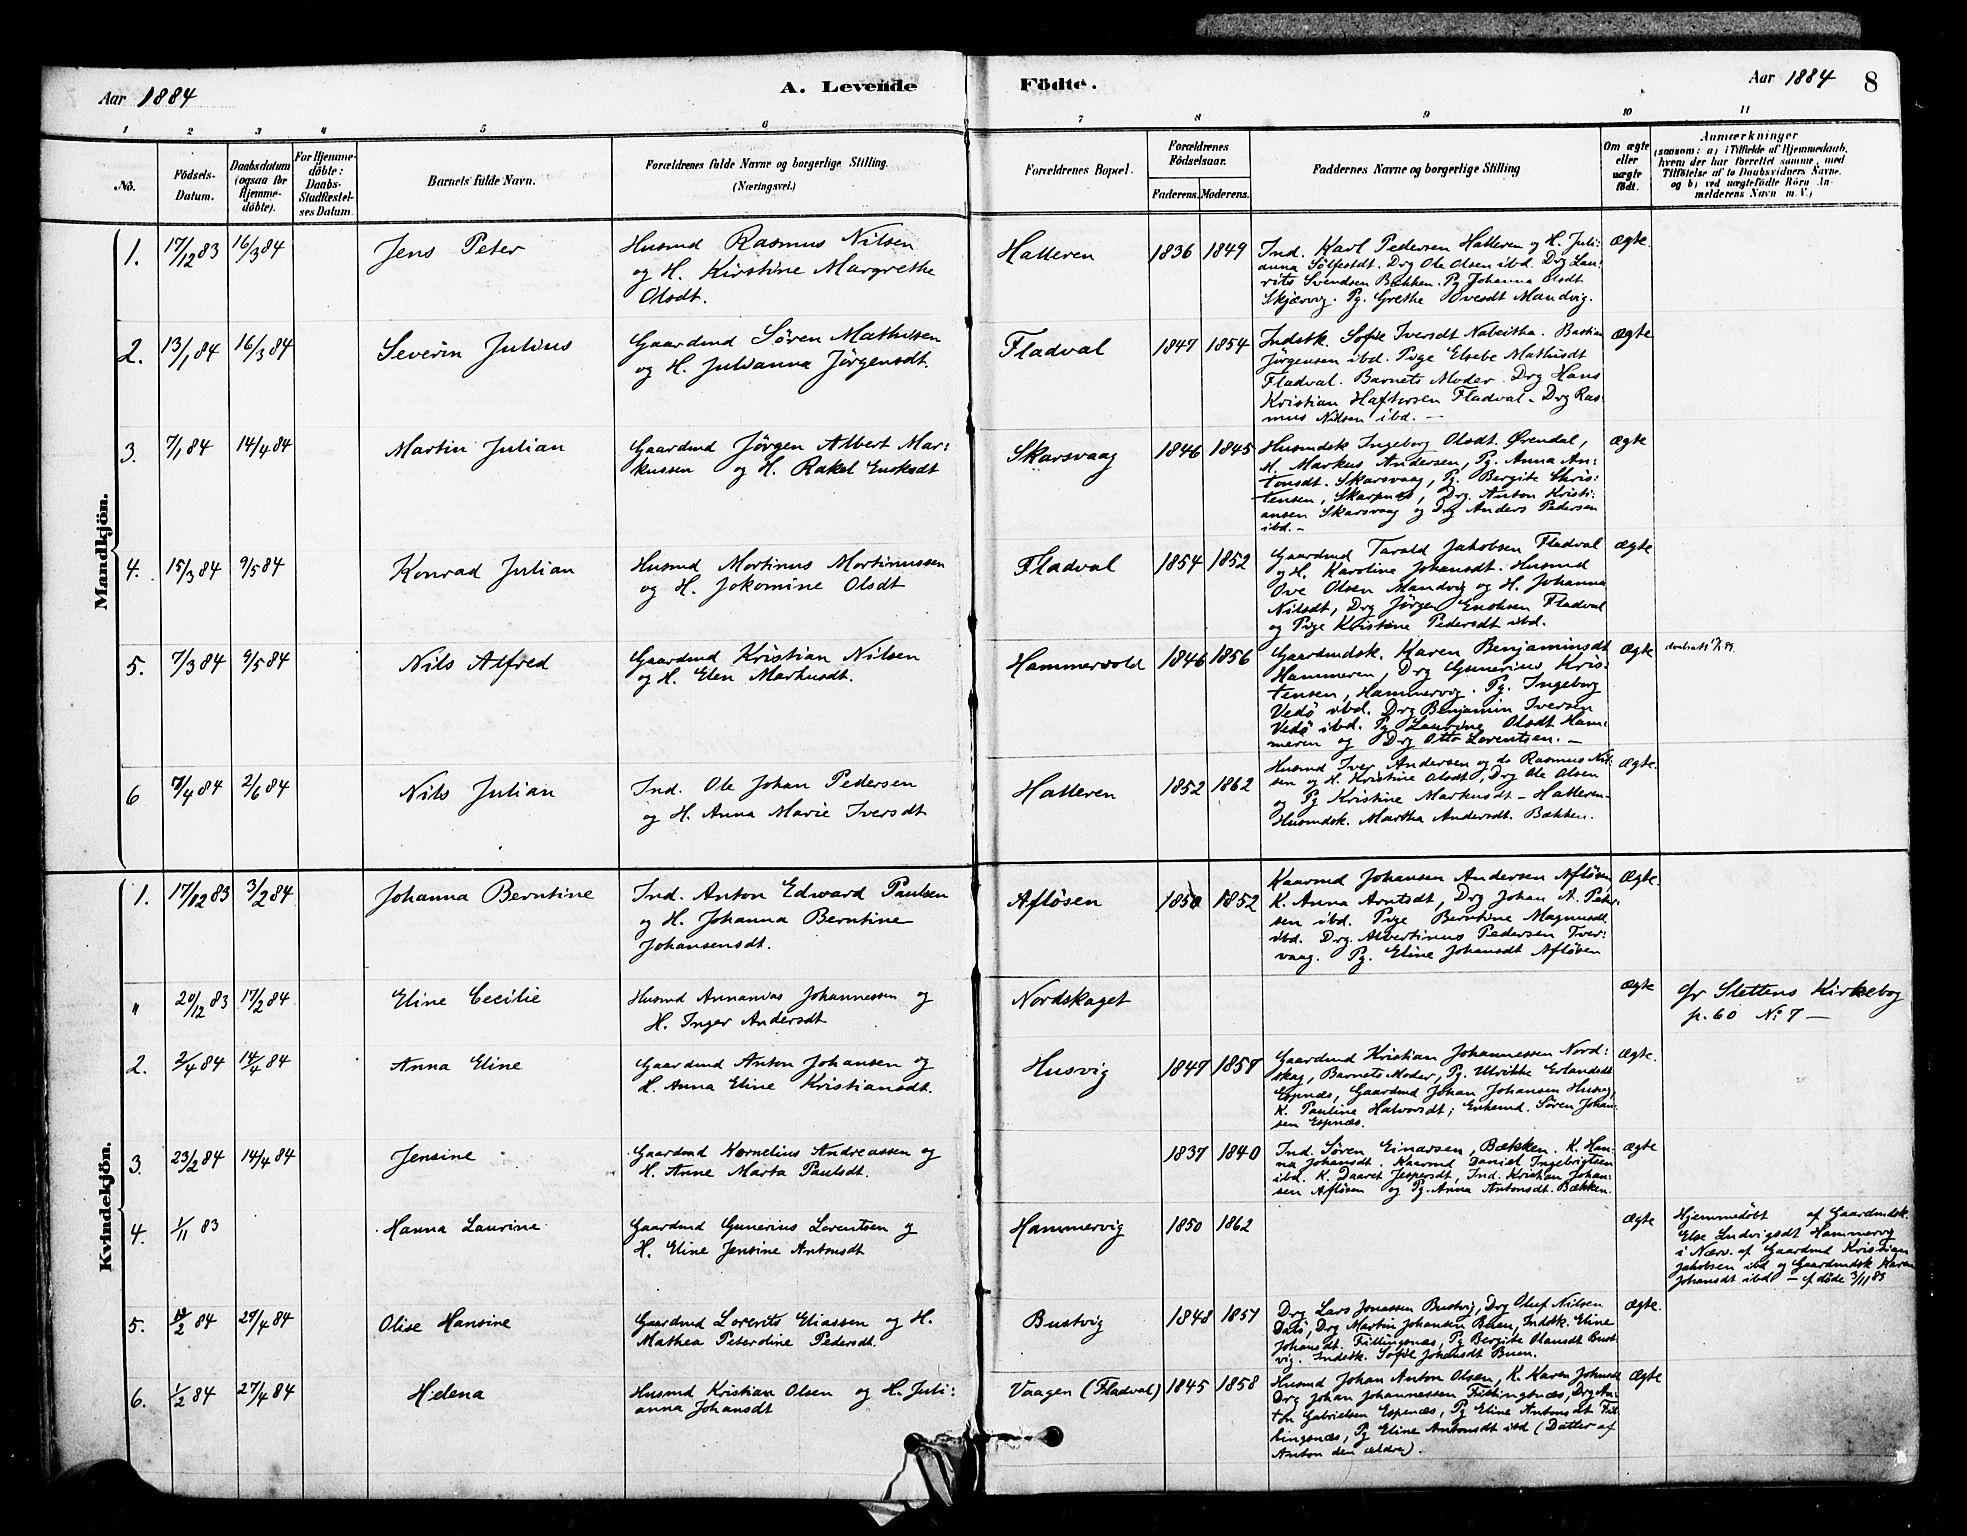 Aar 1884
A. Levende
Födte.
Aar 1884
8
1 2 3 4 5 6 7 8 9 10 11
No.
Födsels-
Datum.
Daabsdatum
(ogsaa for
Hjemme-
döbte).
For Hjemme-
döbte:
Daabs-
Stadfæstel-
ses Datum.
Barnets fulde Navn.
Forældrenes fulde Navne og borgerlige Stilling.
(Næringsvei.)
Forældrenes Bopæl.
Forældrenes
Födselsaar.
Faderens. Moderens.
Faddernes Navne og borgerlige Stilling
Om ægte
eller
uægte
födt.
Anmærkninger
(saasom: a) i Tilfælde af Hjemmedaab,
hvem der har forrettet samme, med
Tilföielse af to Daabsvidners Navne.
og b) ved uægtefödte Börn An-
melderens Navn m. V.)
Mandkjön.
1. 17/12 83 16/3 84 Jens Peter
Husmd Rasmus Nilsen
og H. Kirstine Margrethe
Olsdt.
Hatteren 1836 1849
Ind. Karl Pedersen Hatteren og H. Juli-
anna Sölfestdt. Drg Ole Olsen ibd. Drg Lau-
rits Svendsen Bækken. Pg Johanna Olsdt
Skjærvig. Pg. Grethe Ovesdt Mandvig.
Ægte.
2. 13/1 84 16/3 84 Severin Julius
Gaardmd Sören Mathisen
og H. Julianna Jørgensdt.
Fladval 1847 1854
Indstk. Sofie Iversdt Nabeitha. Bastian
Jørgensen ibd. Pige Elsebe Mathisdt
Fladval. Barnets Moder. Drg Hans
Kristian Haftorsen Fladval. Drg Ras-
mus Nilsen ibd. —
Ægte
3. 7/1 84 14/4 84 Martin Julian
Gaardmd Jørgen Albert Mar-
kussen og H. Rakel Enoksdt
Skarsvaag 1846 1845
Husmdsk Ingeborg Olsdt. Ørendal,
H. Markus Andersen, Pg. Anna An-
tonsdt. Skarsvaag, Pg. Bergite Chris-
tensen, Skarpnes, Drg. Anton Kristi-
ansen Skarsvaag og Drg Anders Pedersen
ibd. —
ægte
4. 15/3 84 9/5 84 Konrad Julian
Husmd Mortinus Mortinussen
og H. Jokomine Olsdt
Fladval 1854 1852
Gaardmd Tarald Jakobsen Fladval
og H. Karoline Johansdt. Husmd
Ove Olsen Mandvig og H. Johanna
Nilsdt, Drg Jørgen Enoksen Fladval
og Pige Kristine Pedersdt ibd.
Ægte
5. 7/3 84 9/5 84 Nils Alfred
Gaardmd Kristian Nilsen
og H. Elen Markusdt.
Hammervold 1846 1856
Gaardmdsk. Karen Benjaminsdt
Hammeren, Drg Gunerius Kris-
tensen, Hammervig. Pg. Ingeborg
Vedö ibd. Drg Benjamin Iversen
Vedö ibd. Pg Laurine Olsdt Ham-
meren og Drg Otto Lorentsen. —
Ægte
6 7/4 84 2/6 84 Nils Julian
Ind. Ole Johan Pedersen
og H. Anna Marie Iversdt
Hatteren 1852 1862
Husmd Iver Andersen og do Rasmus Nil-
sen og H. Kristine Olsdt, Drg Ole Olsen
og Pg Kristine Markusdt — Hatteren —
Husmdsk. Martha Andersdt. Bækken.
Ægte.
Kvindekjön.
1. 17/12 83 3/2 84 Johanna Berntine
Ind. Anton Edward Paulsen
og H. Johanna Berntine
Johansensdt.
Aflösen 1850 1852
Kaarmd Johansen Andersen Aflösen
K. Anna Arntsdt, Drg Johan A. Peter-
sen ibd. Pige Berntine Magnusdt
ibd. Drg. Albertinus Pedersen Tver-
vaag. Pg. Eline Johansdt Aflösen
Ægte.
" 20/12 83 17/2 84 Eline Cecilie
Husmd Annanias Johannessen og
H. Inger Andersdt
Nordskaget
Ægte
cfr Slettens Kirkebog
p. 60 No 7 —
2. 2/4 84 14/4 84 Anna Eline
Gaardmd Anton Johansen og
H. Anna Eline Kristiansdt.
Husvig 1847 1857
Gaardmd Kristian Johannessen Nord-
skag, Barnets Moder, Pg. Ulrikke Erlandsdt
Espnes, Gaardmd Johan Johansen Husvig,
K. Pauline Halvorsdt; Enkemd. Sören Johan-
sen Espnæs.
Ægte.
3. 23/2 84 14/4 84 Jensine
Gaardmd Kornelius Andreassen og
H. Anne Marta Paulsdt.
1837 1840
Ind. Sören Einarsen, Bækken. K. Han-
na Johansdt. Kaarmd Daniel Ingebrigtsen
ibd. K. Daaret Jespersdt, Ind. Kristian Johan-
sen Aflösen og Pg. Anna Antonsdt. Bækken.
Ægte
4. 1/11 83 Hanna Laurine
Gaardmd Gunerius Lorentsen og
H. Eline Jensine Antonsdt
Hammervig 1850 1862
Ægte
Hjemmedöbt af Gaardmdsk.
Else Ludvigsdt Hammervig
i Nærv. af Gaardmd Kristian
Jakobsen ibd og Gaardmdsk Karen
Johansdt ibd — cf döde 3/11 83
5. 84 29/4 84 Olise Hansine
Gaardmd Lorents Eliassen og H.
Mathea Peterdine Pedersdt.
Bustvig 1848 1857
Drg Lars Jonassen Bustvig, Drg Oluf Nilsen
Dalö, Drg Martin Johansen Buen, Indstk. Eline
Johansdt. Fillingsnæs, Pg Bergite Olausdt Bust-
vig. Indstk. Sofie Johansdt Buen.
Ægte.
6. 1/2 84 27/4 84 Helena
Husmd Kristian Olsen og H. Juli-
anna Johansdt
Vaagen (Fladval) 1845 1858
Husmd Johan Anton Olsen, K. Karen Johnsdt
Drg Johan Johannessen Fillingsnæs, Drg An-
ton Gabrielsen Espenæs, Pg Eline Antonsdt Fil-
lingsnæs, Pg Eline Antonsdt ibd (Datter af
Anton den ældre).
Ægte